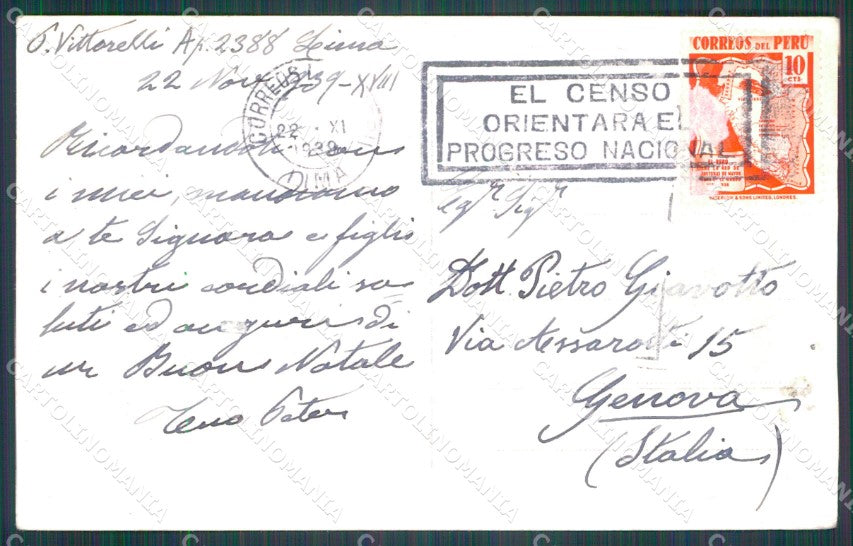 P. Vittorelli Ap. 2388 Lima
22 Nov. 939-XVIII
Ricordandoti con
i miei, mandiamo
a te Signora e figli
i nostri cordiali sa
luti ed auguri di
un Buon Natale
tuo Peter
CORREOS
22 XI
1939
LIMA
EL CENSO
ORIENTARA EL
PROGRESO NACIONAL
CORREOS DEL PERU
10
CTS
WATERLOW & SONS LIMITED, LONDRES.
Egr. Sigr
Dott. Pietro Giavotto
Via Assarotti 15
Genova
(Italia)
CARTOLINOMANIA